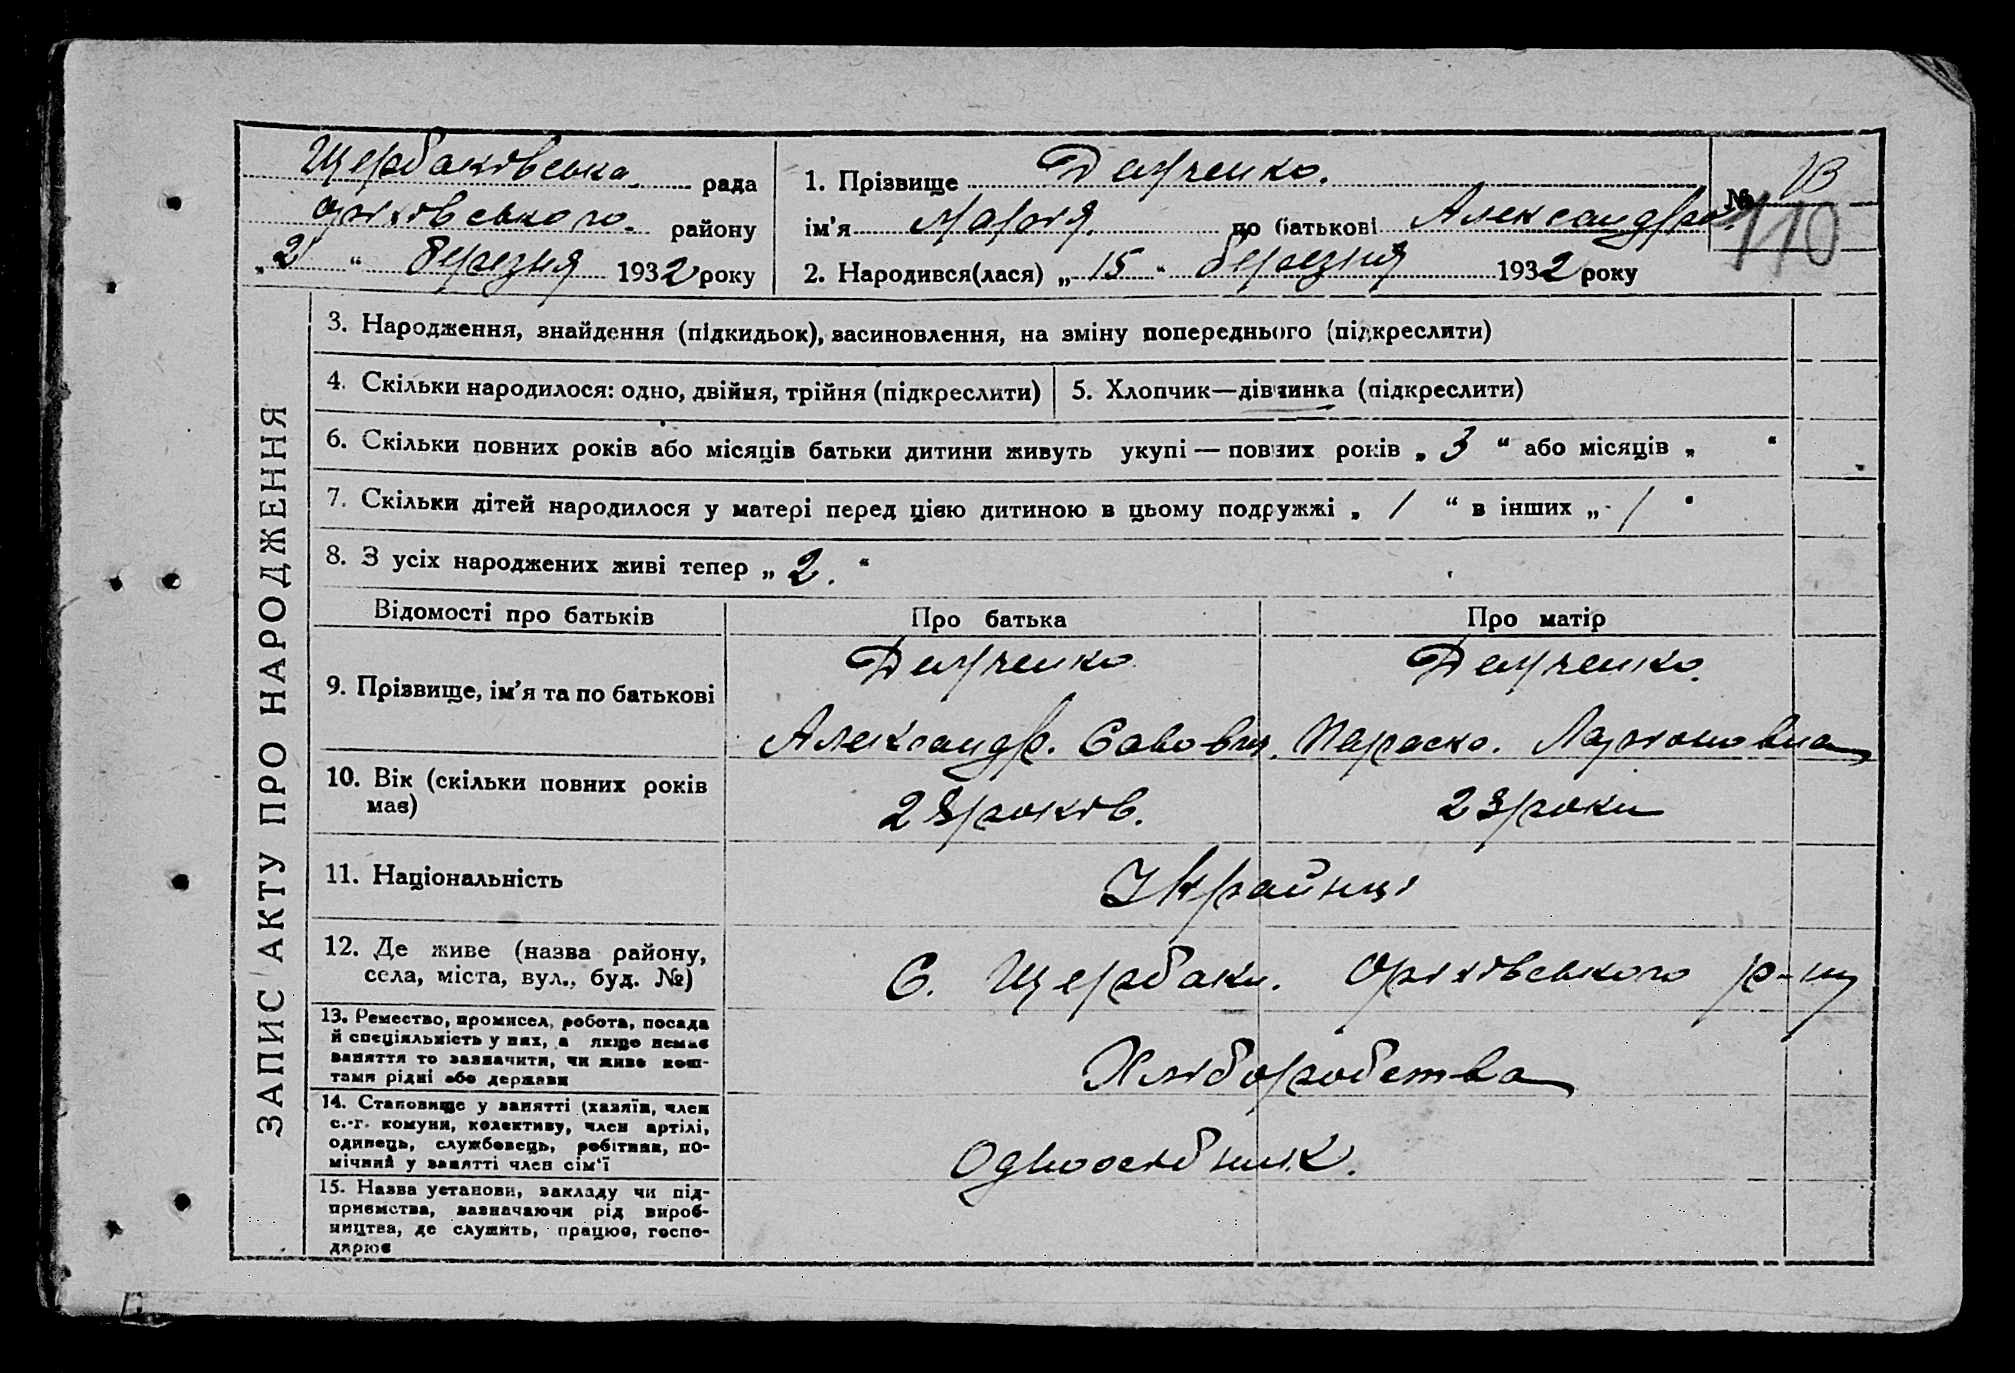 Щербаківська рада
Оріхівського району
„2“ березня 1932 року
1. Прізвище Демченко.
ім'я Марія по батькові Александров.
2. Народився(лася) „15“ березня 1932 року
№ 13
110
ЗАПИС АКТУ ПРО НАРОДЖЕННЯ
3. Народження, знайдення (підкидьок), засиновлення, на зміну попереднього (підкреслити)
4. Скільки народилося: одно, двійня, трійня (підкреслити)
5. Хлопчик—дівчинка (підкреслити)
6. Скільки повних років або місяців батьки дитини живуть укупі — повних років „3“ або місяців „ “
7. Скільки дітей народилося у матері перед цією дитиною в цьому подружжі „1“ в інших „1“
8. З усіх народжених живі тепер „2.“
Відомості про батьків
Про батька
Про матір
9. Прізвище, ім'я та по батькові
Демченко
Александр. Савович.
Демченко.
Параска.
10. Вік (скільки повних років
має)
28 років.
23 роки
11. Національність
Українці
12. Де живе (назва району,
села, міста, вул., буд. №)
С. Щербаки. Оріхівського р-ну
13. Ремество, промисел, робота, посада
й спеціяльність у них, а якщо немає
заняття то зазначити, чи живе кош-
тами рідні або держави
Хліборобства
14. Становище у занятті (хазяїн, член
с.-г. комуни, колективу, член артілі,
одинець, службовець, робітник, по-
мічний у занятті член сім'ї
Одноосібник.
15. Назва установи, закладу чи під-
приємства, зазначаючи рід вироб-
ництва, де служить, працює, госпо-
дарює